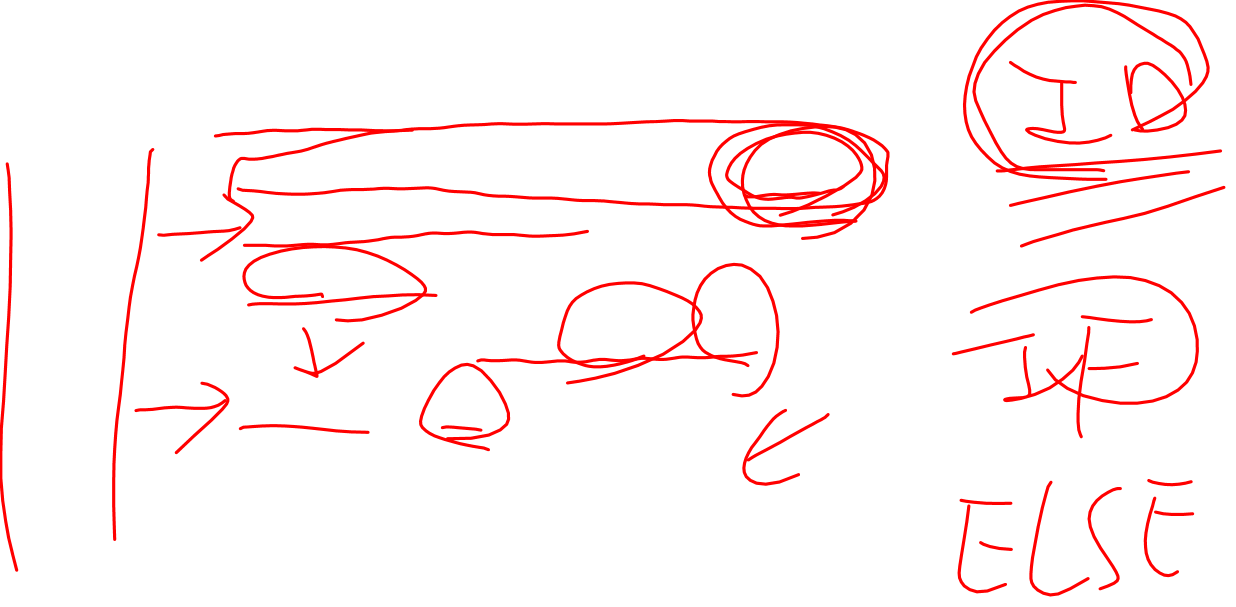 ID
IF
ELSE